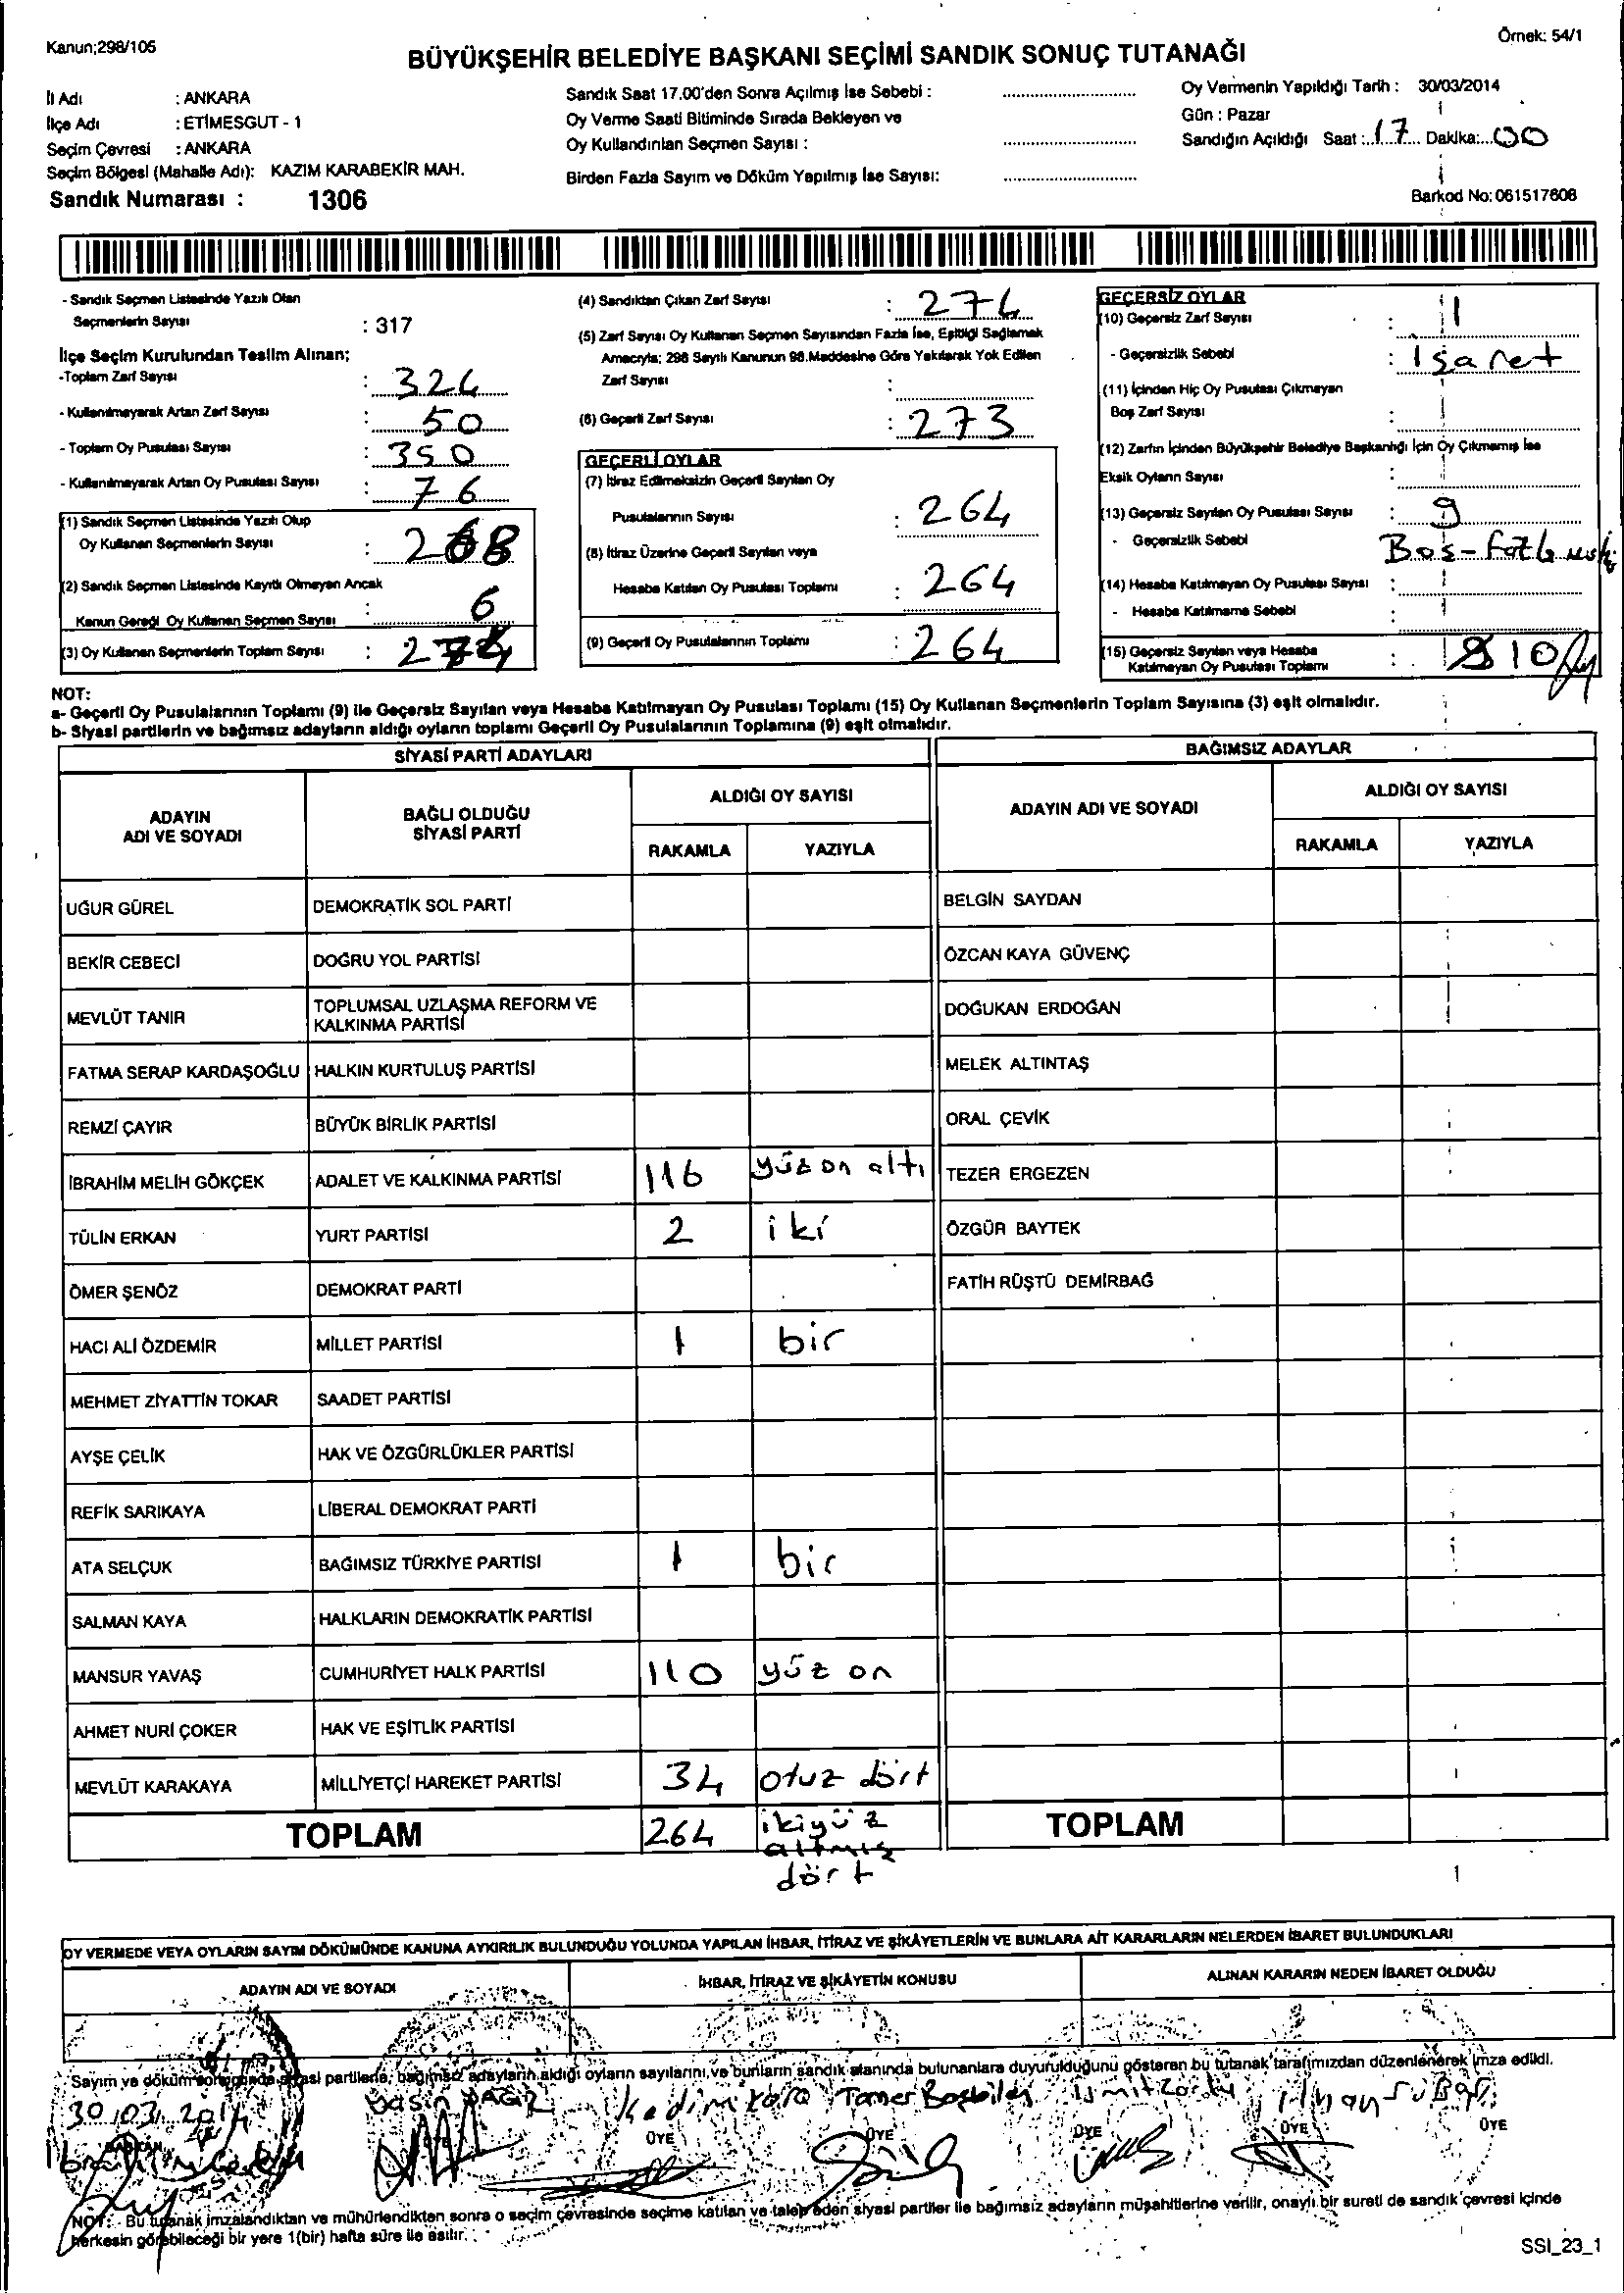 Kanun;298/105
Örnek: 54/1
BÜYÜKŞEHİR BELEDİYE BAŞKANI SEÇİMİ SANDIK SONUÇ TUTANAĞI
İl Adı : ANKARA
İlçe Adı : ETİMESGUT - 1
Seçim Çevresi : ANKARA
Seçim Bölgesi (Mahalle Adı): KAZIM KARABEKİR MAH.
Sandık Numarası : 1306
Sandık Saat 17.00'den Sonra Açılmış İse Sebebi :
Oy Verme Saati Bitiminde Sırada Bekleyen ve
Oy Kullandırılan Seçmen Sayısı :
Birden Fazla Sayım ve Döküm Yapılmış İse Sayısı:
Oy Vermenin Yapıldığı Tarih : 30/03/2014
Gün : Pazar
Sandığın Açıldığı Saat : 17 Dakika: 00
Barkod No: 061517608
- Sandık Seçmen Listesinde Yazılı Olan
Seçmenlerin Sayısı : 317
İlçe Seçim Kurulundan Teslim Alınan;
-Toplam Zarf Sayısı : 324
- Kullanılmayarak Artan Zarf Sayısı : 50
- Toplam Oy Pusulası Sayısı : 350
- Kullanılmayarak Artan Oy Pusulası Sayısı : 76
(1) Sandık Seçmen Listesinde Yazılı Olup
Oy Kullanan Seçmenlerin Sayısı : 268
(2) Sandık Seçmen Listesinde Kayıtlı Olmayan Ancak
Kanun Gereği Oy Kullanan Seçmen Sayısı : 6
(3) Oy Kullanan Seçmenlerin Toplam Sayısı : 274
(4) Sandıktan Çıkan Zarf Sayısı : 274
(5) Zarf Sayısı Oy Kullanan Seçmen Sayısından Fazla İse, Eşitliği Sağlamak
Amacıyla; 298 Sayılı Kanunun 98.Maddesine Göre Yakılarak Yok Edilen
Zarf Sayısı :
(6) Geçerli Zarf Sayısı : 273
GEÇERLİ OYLAR
(7) İtiraz Edilmeksizin Geçerli Sayılan Oy
Pusulalarının Sayısı : 264
(8) İtiraz Üzerine Geçerli Sayılan veya
Hesaba Katılan Oy Pusulası Toplamı : 264
(9) Geçerli Oy Pusulalarının Toplamı : 264
GEÇERSİZ OYLAR
(10) Geçersiz Zarf Sayısı : 1
- Geçersizlik Sebebi : işaret
(11) İçinden Hiç Oy Pusulası Çıkmayan
Boş Zarf Sayısı :
(12) Zarfın İçinden Büyükşehir Belediye Başkanlığı İçin Oy Çıkmamış İse
Eksik Oyların Sayısı :
(13) Geçersiz Sayılan Oy Pusulası Sayısı : 9
- Geçersizlik Sebebi Boş-
(14) Hesaba Katılmayan Oy Pusulası Sayısı :
- Hesaba Katılmama Sebebi :
(15) Geçersiz Sayılan veya Hesaba
Katılmayan Oy Pusulası Toplamı : 10
NOT:
a- Geçerli Oy Pusulalarının Toplamı (9) ile Geçersiz Sayılan veya Hesaba Katılmayan Oy Pusulası Toplamı (15) Oy Kullanan Seçmenlerin Toplam Sayısına (3) eşit olmalıdır.
b- Siyasi partilerin ve bağımsız adayların aldığı oyların toplamı Geçerli Oy Pusulalarının Toplamına (9) eşit olmalıdır.
SİYASİ PARTİ ADAYLARI
BAĞIMSIZ ADAYLAR
ADAYIN ADI VE SOYADI
BAĞLI OLDUĞU SİYASİ PARTİ
ALDIĞI OY SAYISI
RAKAMLA YAZIYLA
ADAYIN ADI VE SOYADI
ALDIĞI OY SAYISI
RAKAMLA YAZIYLA
UĞUR GÜREL DEMOKRATİK SOL PARTİ BELGİN SAYDAN
BEKİR CEBECİ DOĞRU YOL PARTİSİ ÖZCAN KAYA GÜVENÇ
MEVLÜT TANIR TOPLUMSAL UZLAŞMA REFORM VE KALKINMA PARTİSİ DOĞUKAN ERDOĞAN
FATMA SERAP KARDAŞOĞLU HALKIN KURTULUŞ PARTİSİ MELEK ALTINTAŞ
REMZİ ÇAYIR BÜYÜK BİRLİK PARTİSİ ORAL ÇEVİK
İBRAHİM MELİH GÖKÇEK ADALET VE KALKINMA PARTİSİ 116 yüz on altı TEZER ERGEZEN
TÜLİN ERKAN YURT PARTİSİ 2 iki ÖZGÜR BAYTEK
ÖMER ŞENÖZ DEMOKRAT PARTİ FATİH RÜŞTÜ DEMİRBAĞ
HACI ALİ ÖZDEMİR MİLLET PARTİSİ 1 bir
MEHMET ZİYATTİN TOKAR SAADET PARTİSİ
AYŞE ÇELİK HAK VE ÖZGÜRLÜKLER PARTİSİ
REFİK SARIKAYA LİBERAL DEMOKRAT PARTİ
ATA SELÇUK BAĞIMSIZ TÜRKİYE PARTİSİ 1 bir
SALMAN KAYA HALKLARIN DEMOKRATİK PARTİSİ
MANSUR YAVAŞ CUMHURİYET HALK PARTİSİ 110 yüz on
AHMET NURİ ÇOKER HAK VE EŞİTLİK PARTİSİ
MEVLÜT KARAKAYA MİLLİYETÇİ HAREKET PARTİSİ 34 otuz dört
TOPLAM 264 ikiyüz altmış dört TOPLAM
OY VERMEDE VEYA OYLARIN SAYIM DÖKÜMÜNDE KANUNA AYKIRILIK BULUNDUĞU YOLUNDA YAPILAN İHBAR, İTİRAZ VE ŞİKÂYETLERİN VE BUNLARA AİT KARARLARIN NELERDEN İBARET BULUNDUKLARI
ADAYIN ADI VE SOYADI
İHBAR, İTİRAZ VE ŞİKÂYETİN KONUSU
ALINAN KARARIN NEDEN İBARET OLDUĞU
Sayım ve döküm sonucunda siyasi partilerle, bağımsız adayların aldığı oyların sayılarını, ve bunların sandık alanında bulunanlara duyurulduğunu gösteren bu tutanak tarafımızdan düzenlenerek imza edildi.
30/03/2014
BAŞKAN ÜYE ÜYE ÜYE ÜYE ÜYE ÜYE
NOT: - Bu tutanak imzalandıktan ve mühürlendikten sonra o seçim çevresinde seçime katılan ve talep eden siyasi partiler ile bağımsız adayların müşahitlerine verilir, onaylı bir sureti de sandık çevresi içinde
herkesin görebileceği bir yere 1(bir) hafta süre ile asılır.
SSI_23_1